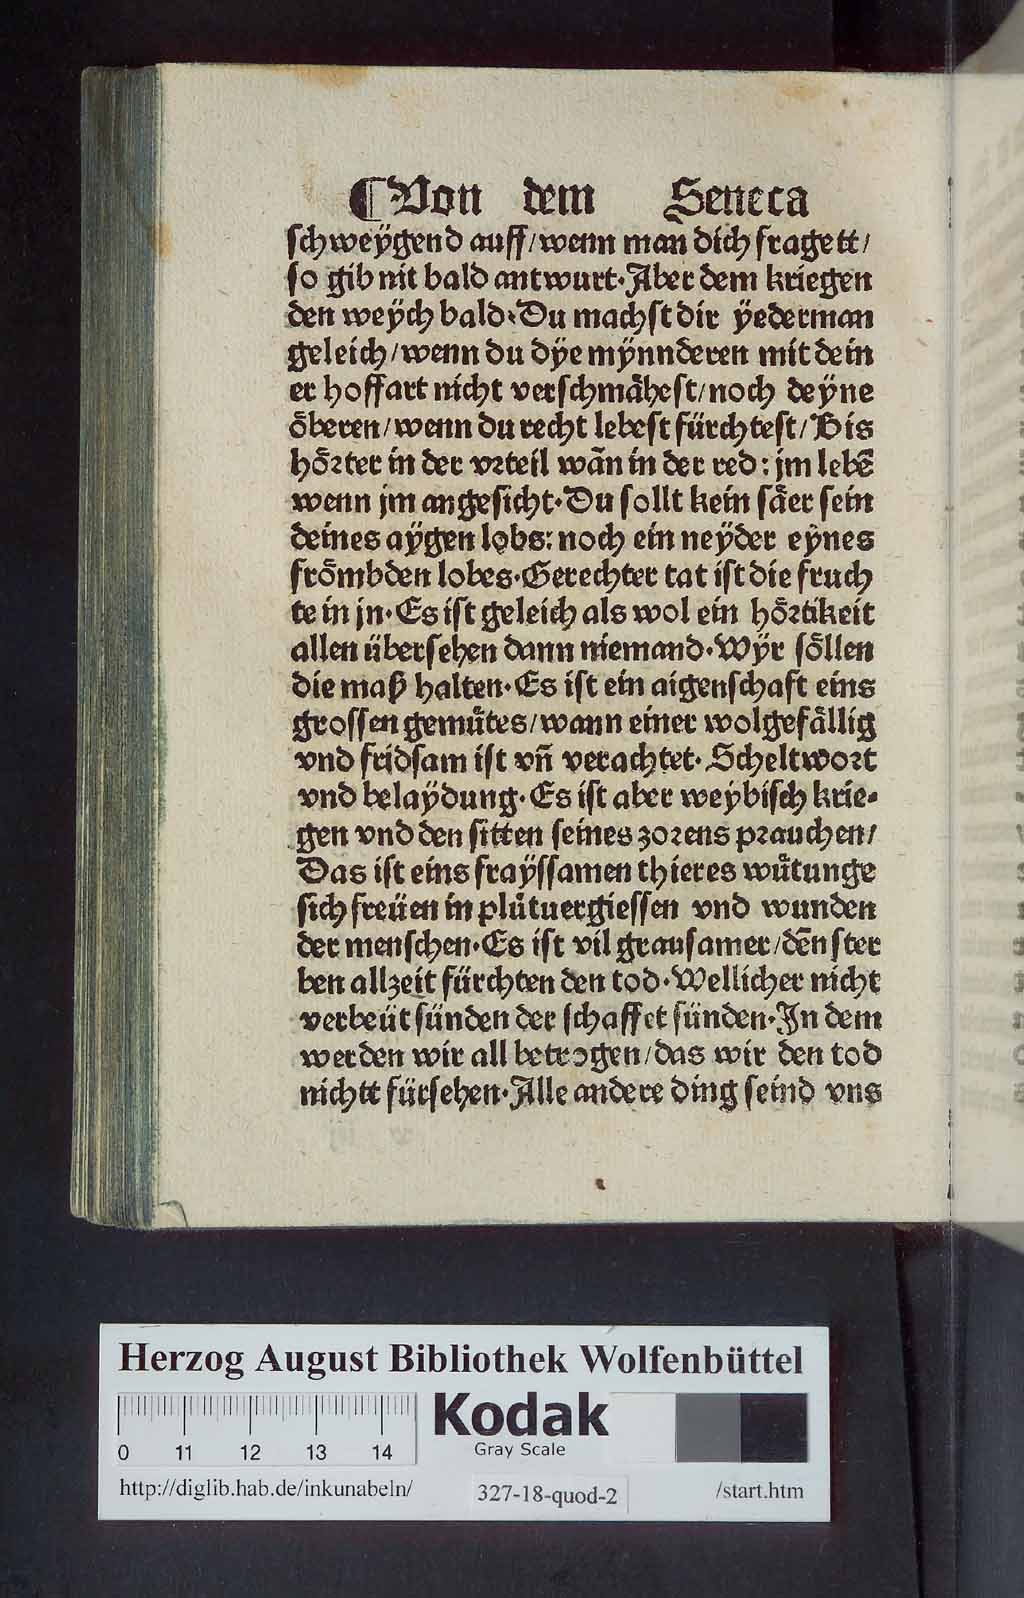 ¶Von dem Seneca
schweÿgend auff/wenn man dich fragett/
so gib nit bald antwurt·Aber dem kriegen
den weÿch bald·Du machst dir ÿederman
geleich/wenn du dÿe mÿnnderen mit dein
er hoffart nicht verschmähest/noch deÿne
öberen/wenn du recht lebest fürchtest/Bis
hörter in der vrteil wān in der red:jm lebē
wenn jm angesicht·Du sollt kein säer sein
deines aÿgen lobs:noch ein neÿder eÿnes
frömbden lobes·Gerechter tat ist die fruch
te in jn·Es ist geleich als wol ein hörtikeit
allen übersehen dann niemand·Wÿr söllen
die maß halten·Es ist ein aigenschaft eins
grossen gemütes/wann einer wolgefällig
vnd fridsam ist vn̄ verachtet·Scheltwort
vnd belaÿdung·Es ist aber weÿbisch krie-
gen vnd den sitten seines zorens prauchen/
Das ist eins fraÿssamen thieres wütunge
sich freüen in plůtuergiessen vnd wunden
der menschen·Es ist vil grausamer/dēn ster
ben allzeit fürchten den tod·Wellicher nicht
verbeüt sünden der schaffet sünden·In dem
werden wir all betrogen/das wir den tod
nichtt fürsehen·Alle andere ding seind vns
Herzog August Bibliothek Wolfenbüttel
Kodak
Gray Scale
0 11 12 13 14
http://diglib.hab.de/inkunabeln/ 327-18-quod-2 /start.htm